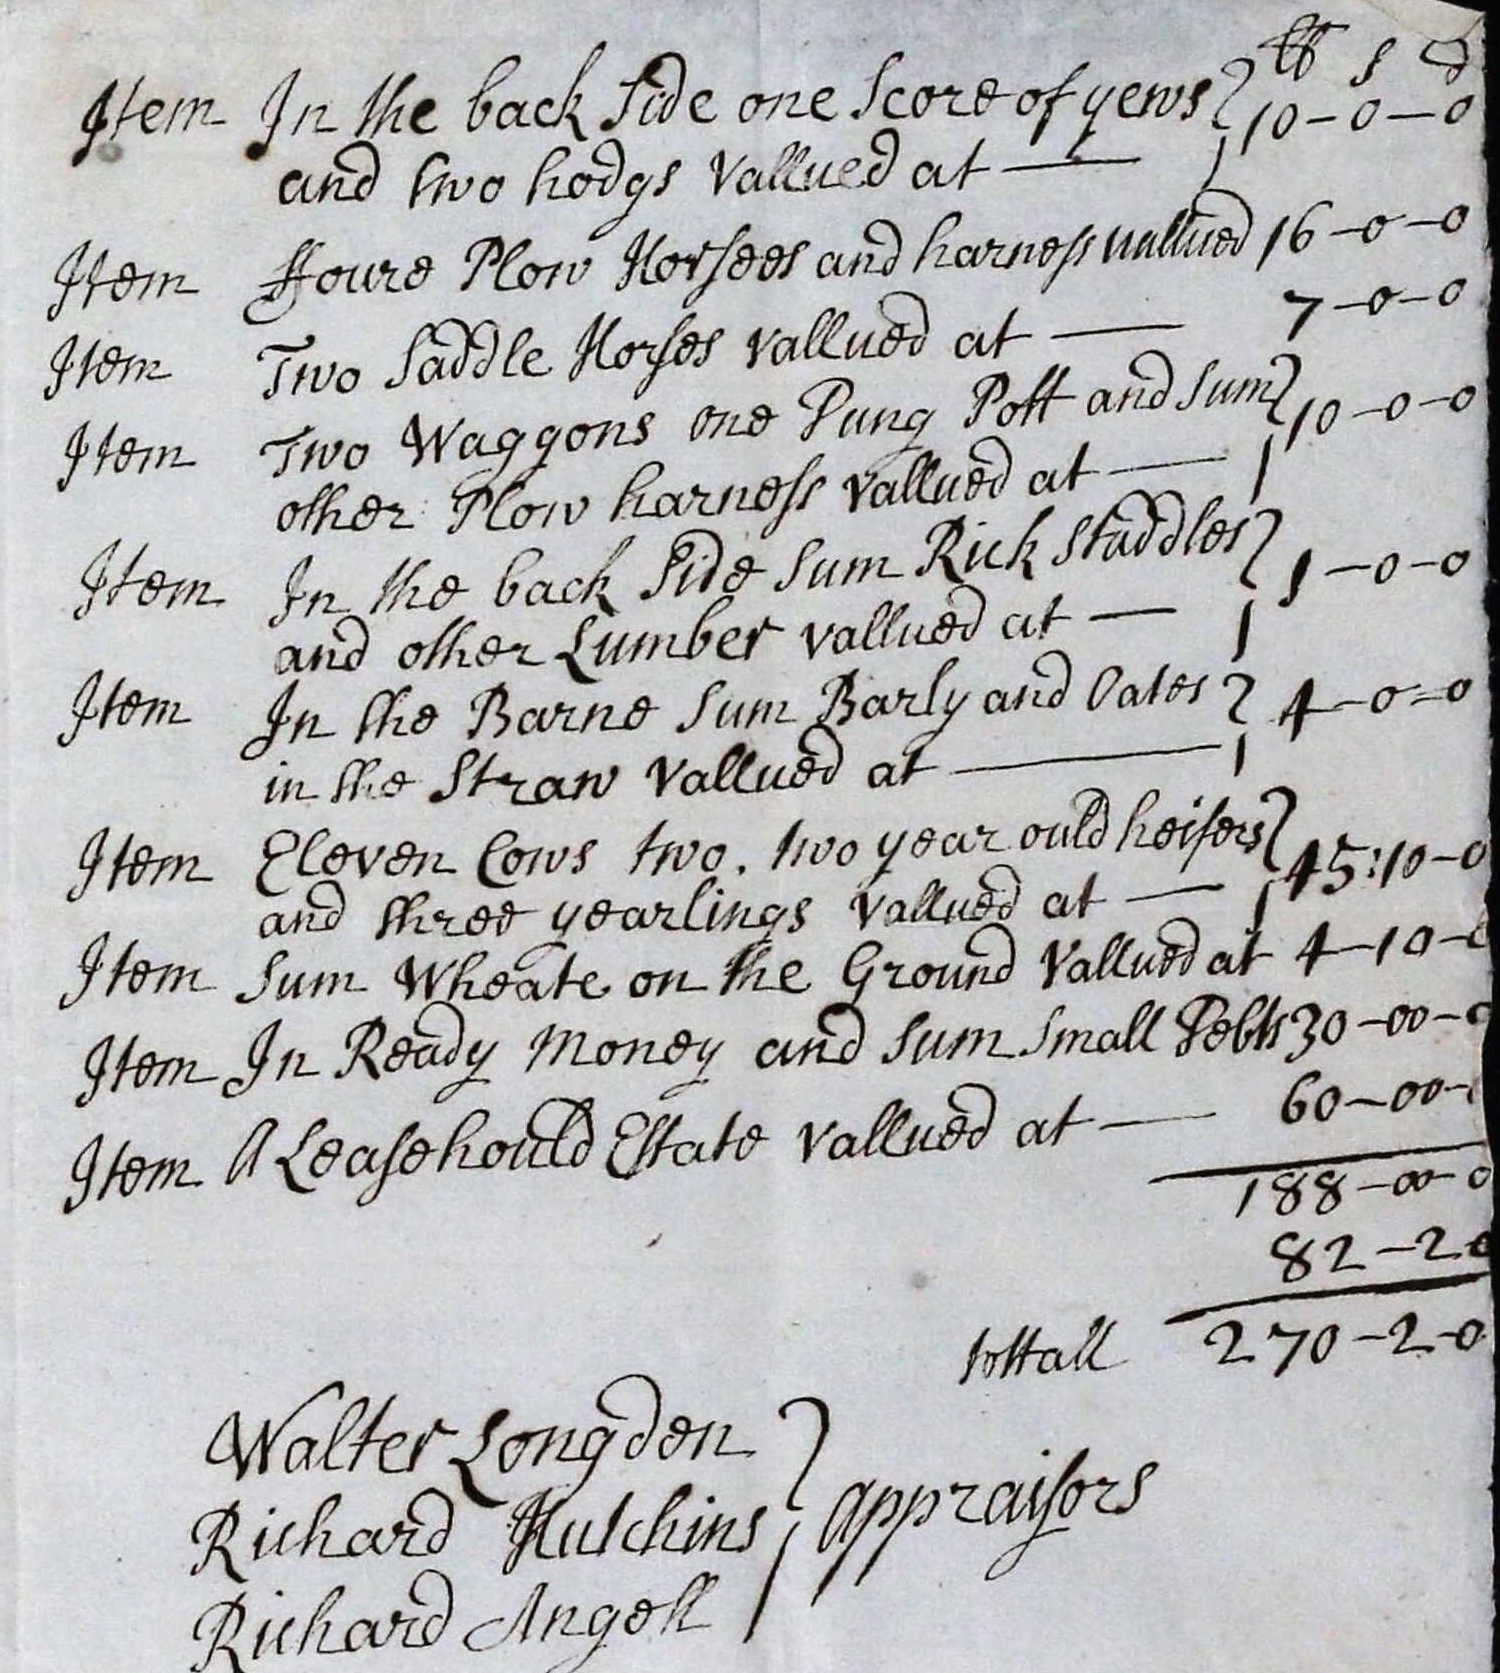 lb s d
Item In the back side one Score of yews 10-0-0
and two hodgs vallued at
Item ffoure Plow Horsees and harness vallued 16-0-0
Item Two Saddle Horses vallued at 7-0-0
Item Two Waggons one Dung Pott and sum 10-0-0
other Plow harness vallued at
Item In the back side sum Rick staddles 1-0-0
and other Lumber vallued at
Item In the Barne sum Barly and Oates 4-0-0
in the Straw vallued at
Item Eleven Cows two. two year ould heifers 45:10-0
and three yearlings vallued at
Item sum Wheate on the Ground vallued at 4-10-0
Item In Ready Money and sum small Debts 30-00-0
Item A Leasehould Estate vallued at 60-00-
188-00-0
82-2-0
tottall 270-2-0
Walter Longden
Richard Hutchins appraisors
Richard Angell